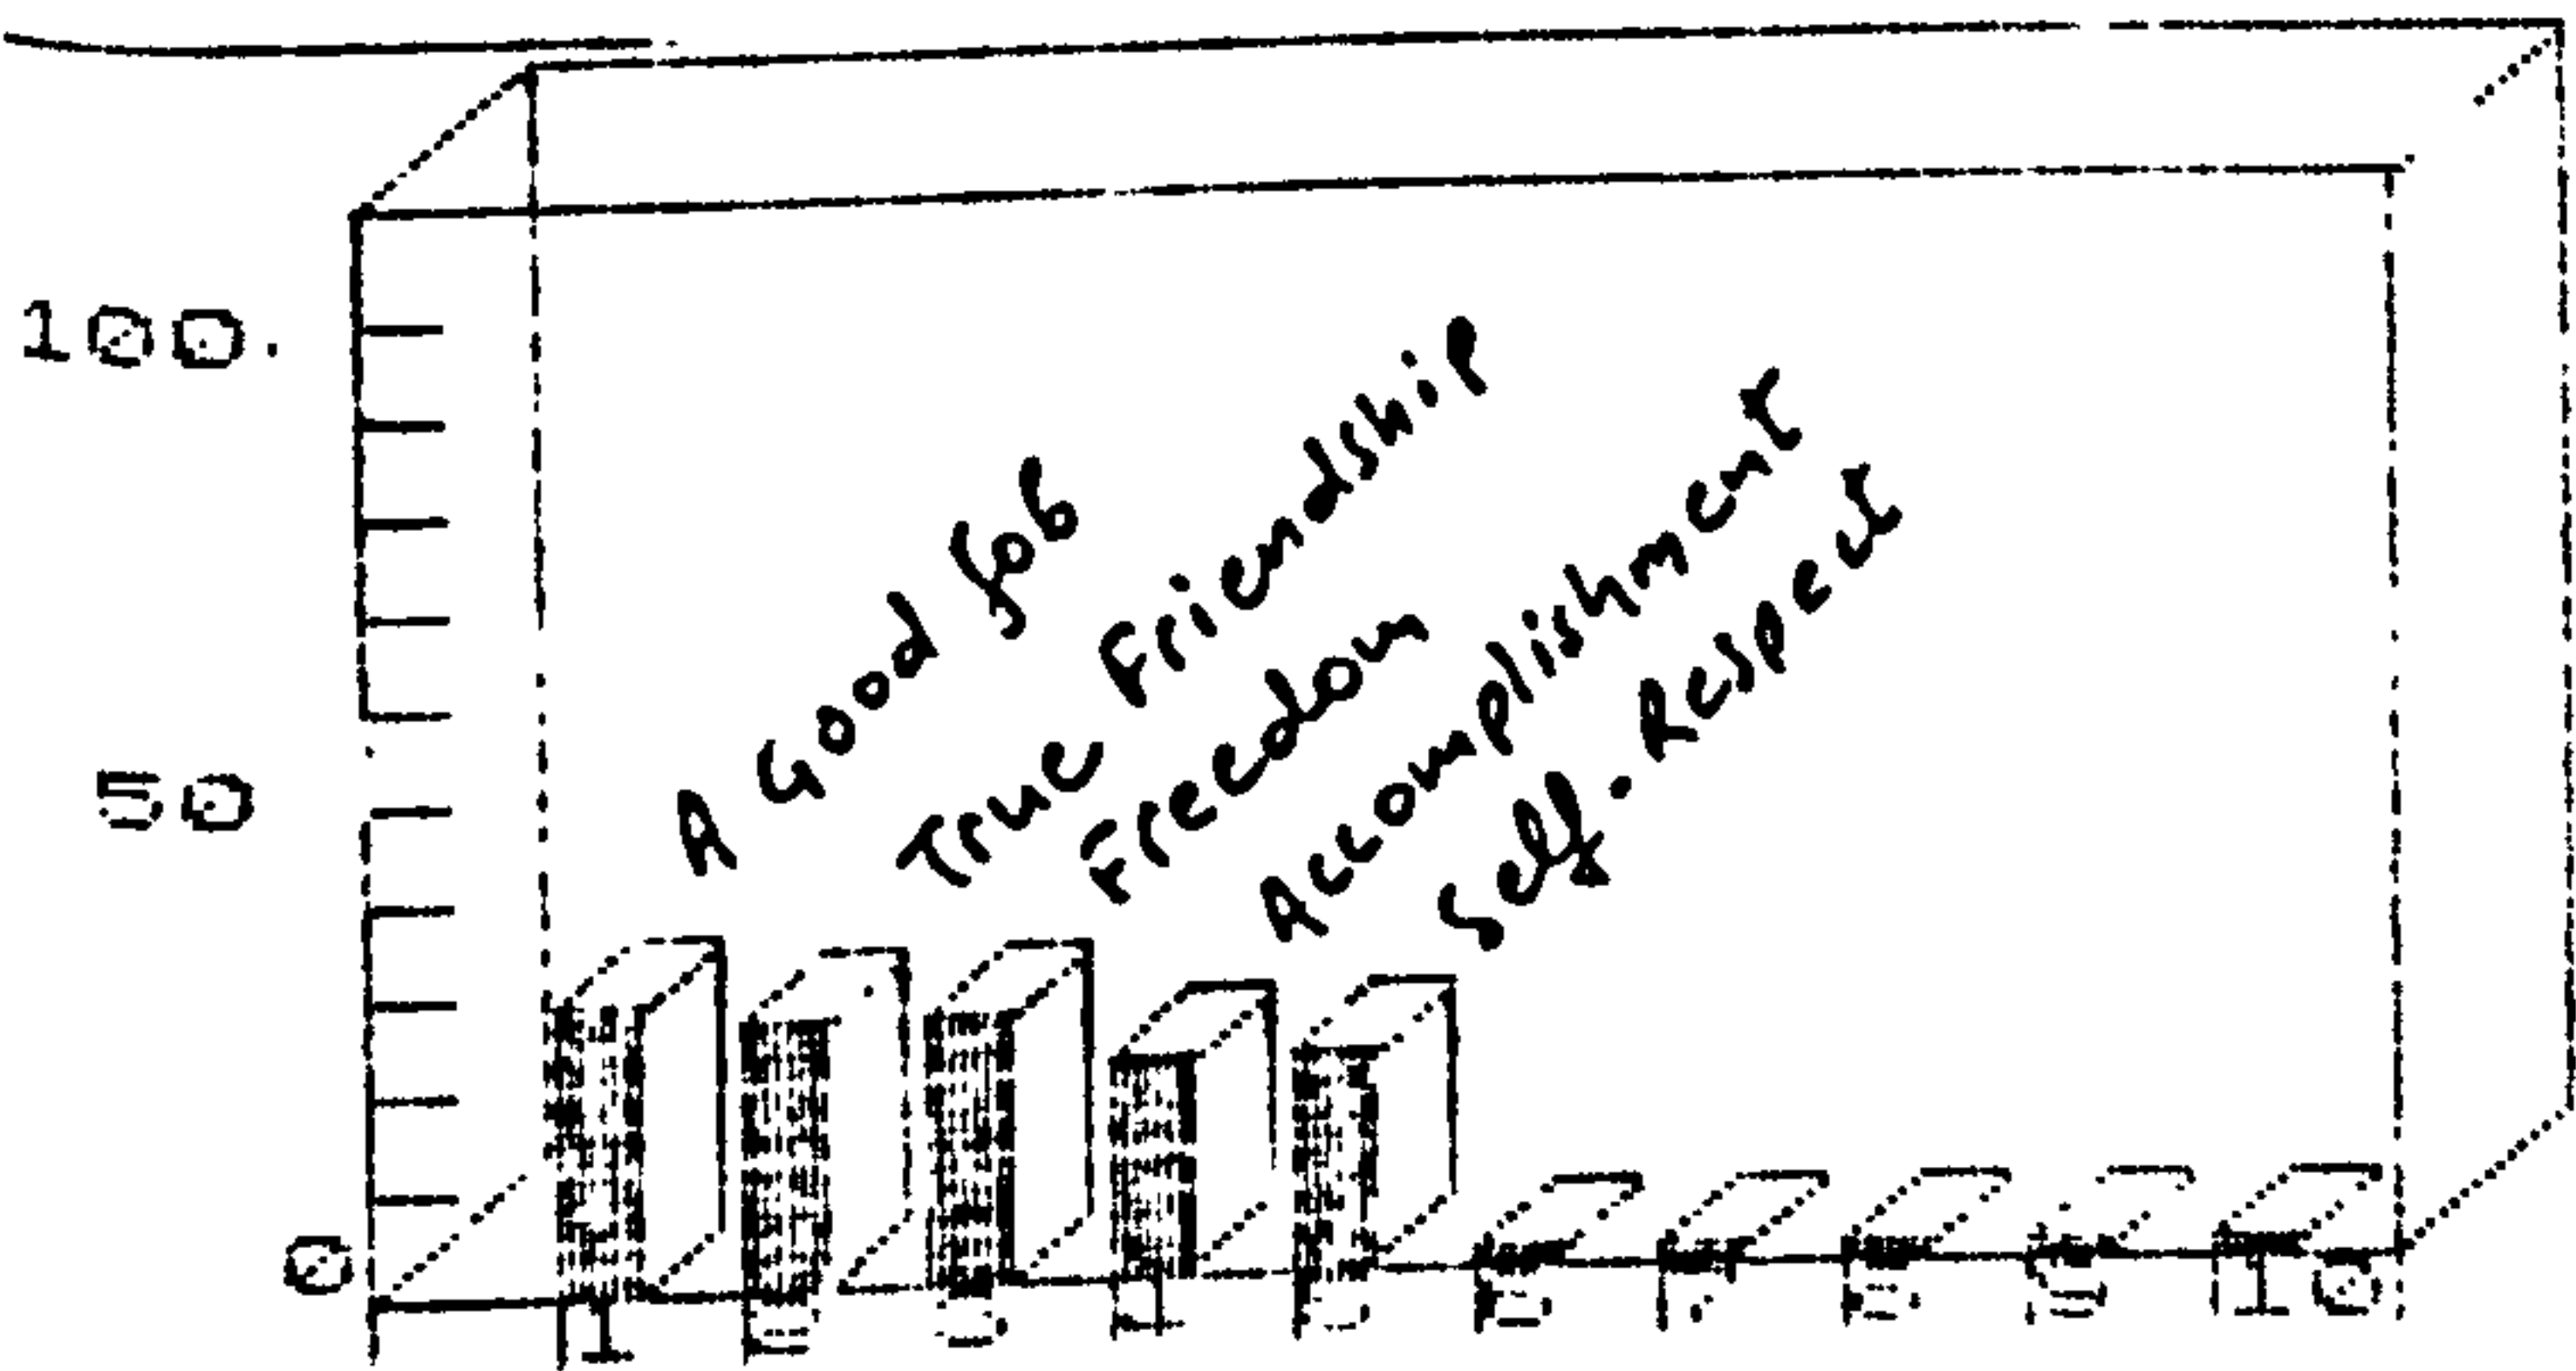 100.
A Good Job
True Friendship
Freedom
Accomplishment
Self-Respect
50
0
1 4 10